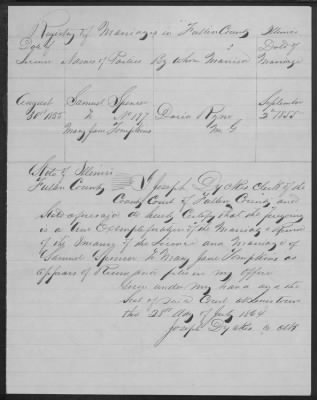 Registry of Marriages in Fulton County Illinois
Date of License Names of Parties By Whom Married Date of Marriage
August 30th 1855 Samuel Spencer to Mary Jane Tompkins No 197 M G September 2d 1855
State of Illinois
Fulton County I Joseph Dyckes Clerk of the
County Court of Fulton County and
State aforesaid do hereby Certify that the foregoing
is a true of the Marriage Record
of the of the License and Marriage of
Samuel Spencer to Mary Jane Tompkins as
appears of Record and files in my Office
Given under my hand and the
Seal of said Court at Lewistown
this 28th day of July 1864
Joseph Dyckes Clk